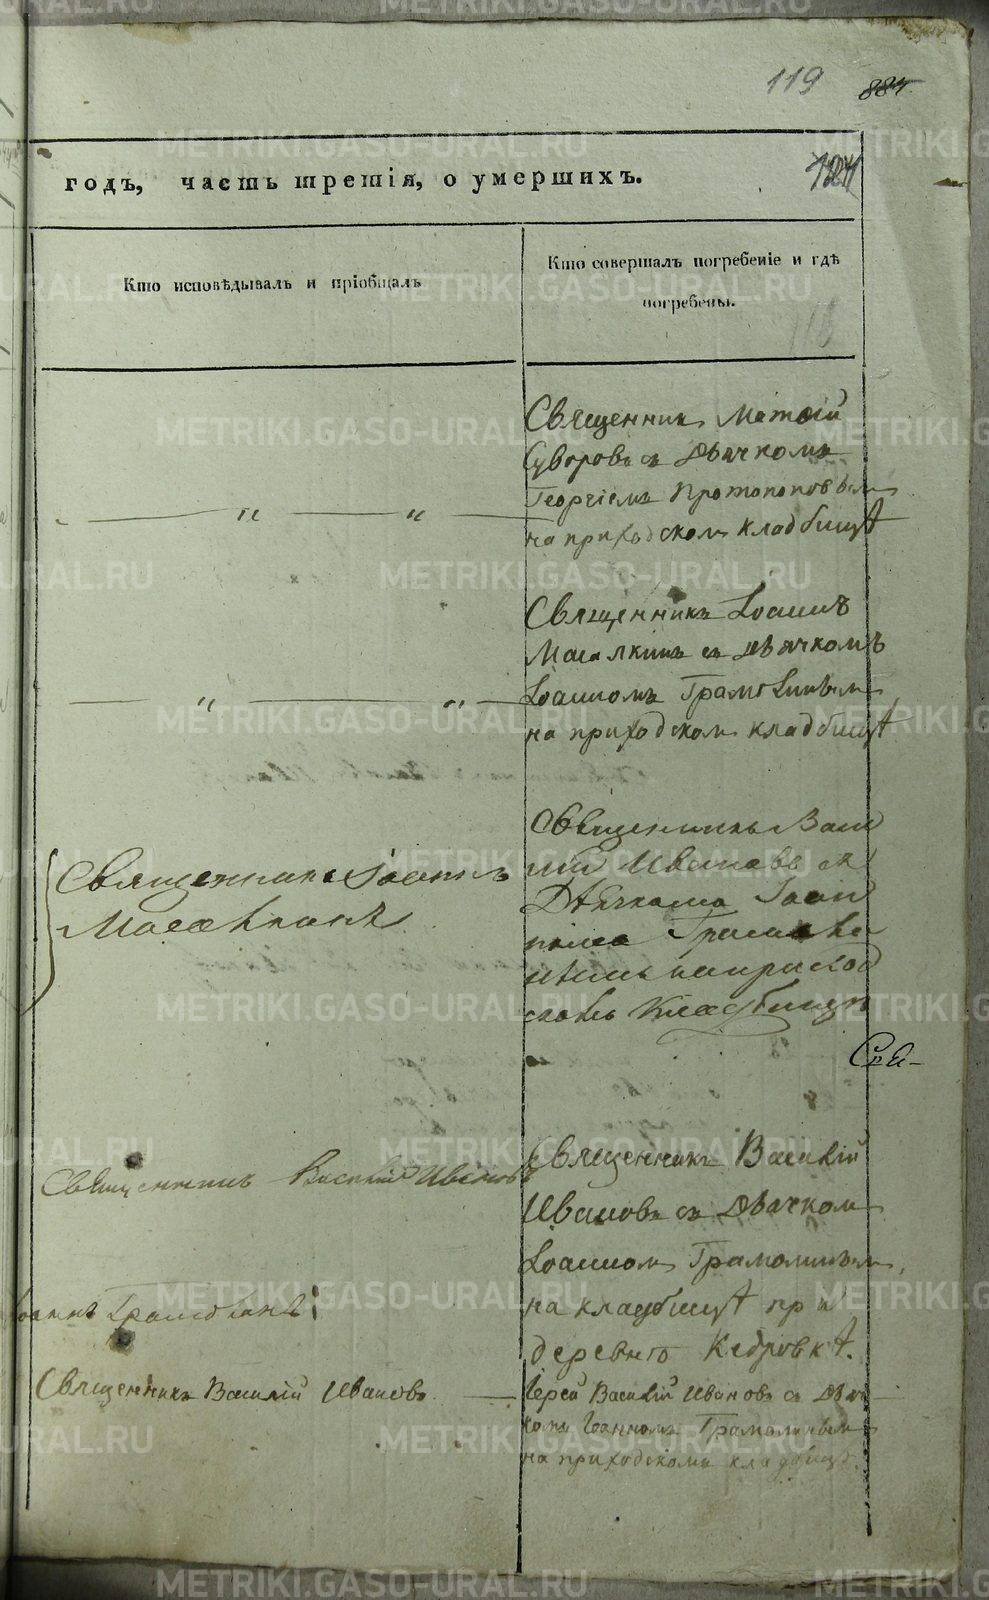 119 884
годъ, часть третія, о умершихъ.
Кто исповѣдывалъ и пріобщалъ
Кто совершалъ погребеніе и гдѣ
погребены.
Священникъ Матѳій
Суворовъ съ Дьячкомъ
Георгіемъ Протопоповымъ
на приходскомъ кладбищѣ
Священникъ Іоаннъ
Масалкинъ съ Дьячкомъ
Іоанномъ Грамолинымъ
на приходскомъ кладбищѣ
Священникъ Іоаннъ
Масалкинъ
Священникъ Васи
лій Ивановъ съ
Дьячкомъ Іоан
номъ Грамоли
нымъ на приход
скомъ Кладбищѣ
Священникъ Василій Ивановъ
Священникъ Василій
Ивановъ съ Дьячкомъ
Іоанномъ Грамолинымъ
на кладбищѣ при
деревнѣ Кедровкѣ.
Іоаннъ Грамолинъ
Священникъ Василій Ивановъ
Іерей Василій Ивановъ съ Дьяч
комъ Іоанномъ Грамолинымъ
на приходскомъ кладбищѣ.
METRIKI.GASO-URAL.RU